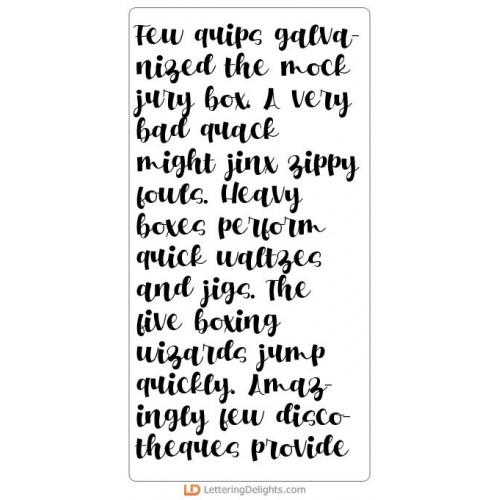 Few quips galva-
nized the mock
jury box. A very
bad quack
might jinx zippy
fowls. Heavy
boxes perform
quick waltzes
and jigs. The
five boxing
wizards jump
quickly. Amaz-
ingly few disco-
theques provide
LD LetteringDelights.com